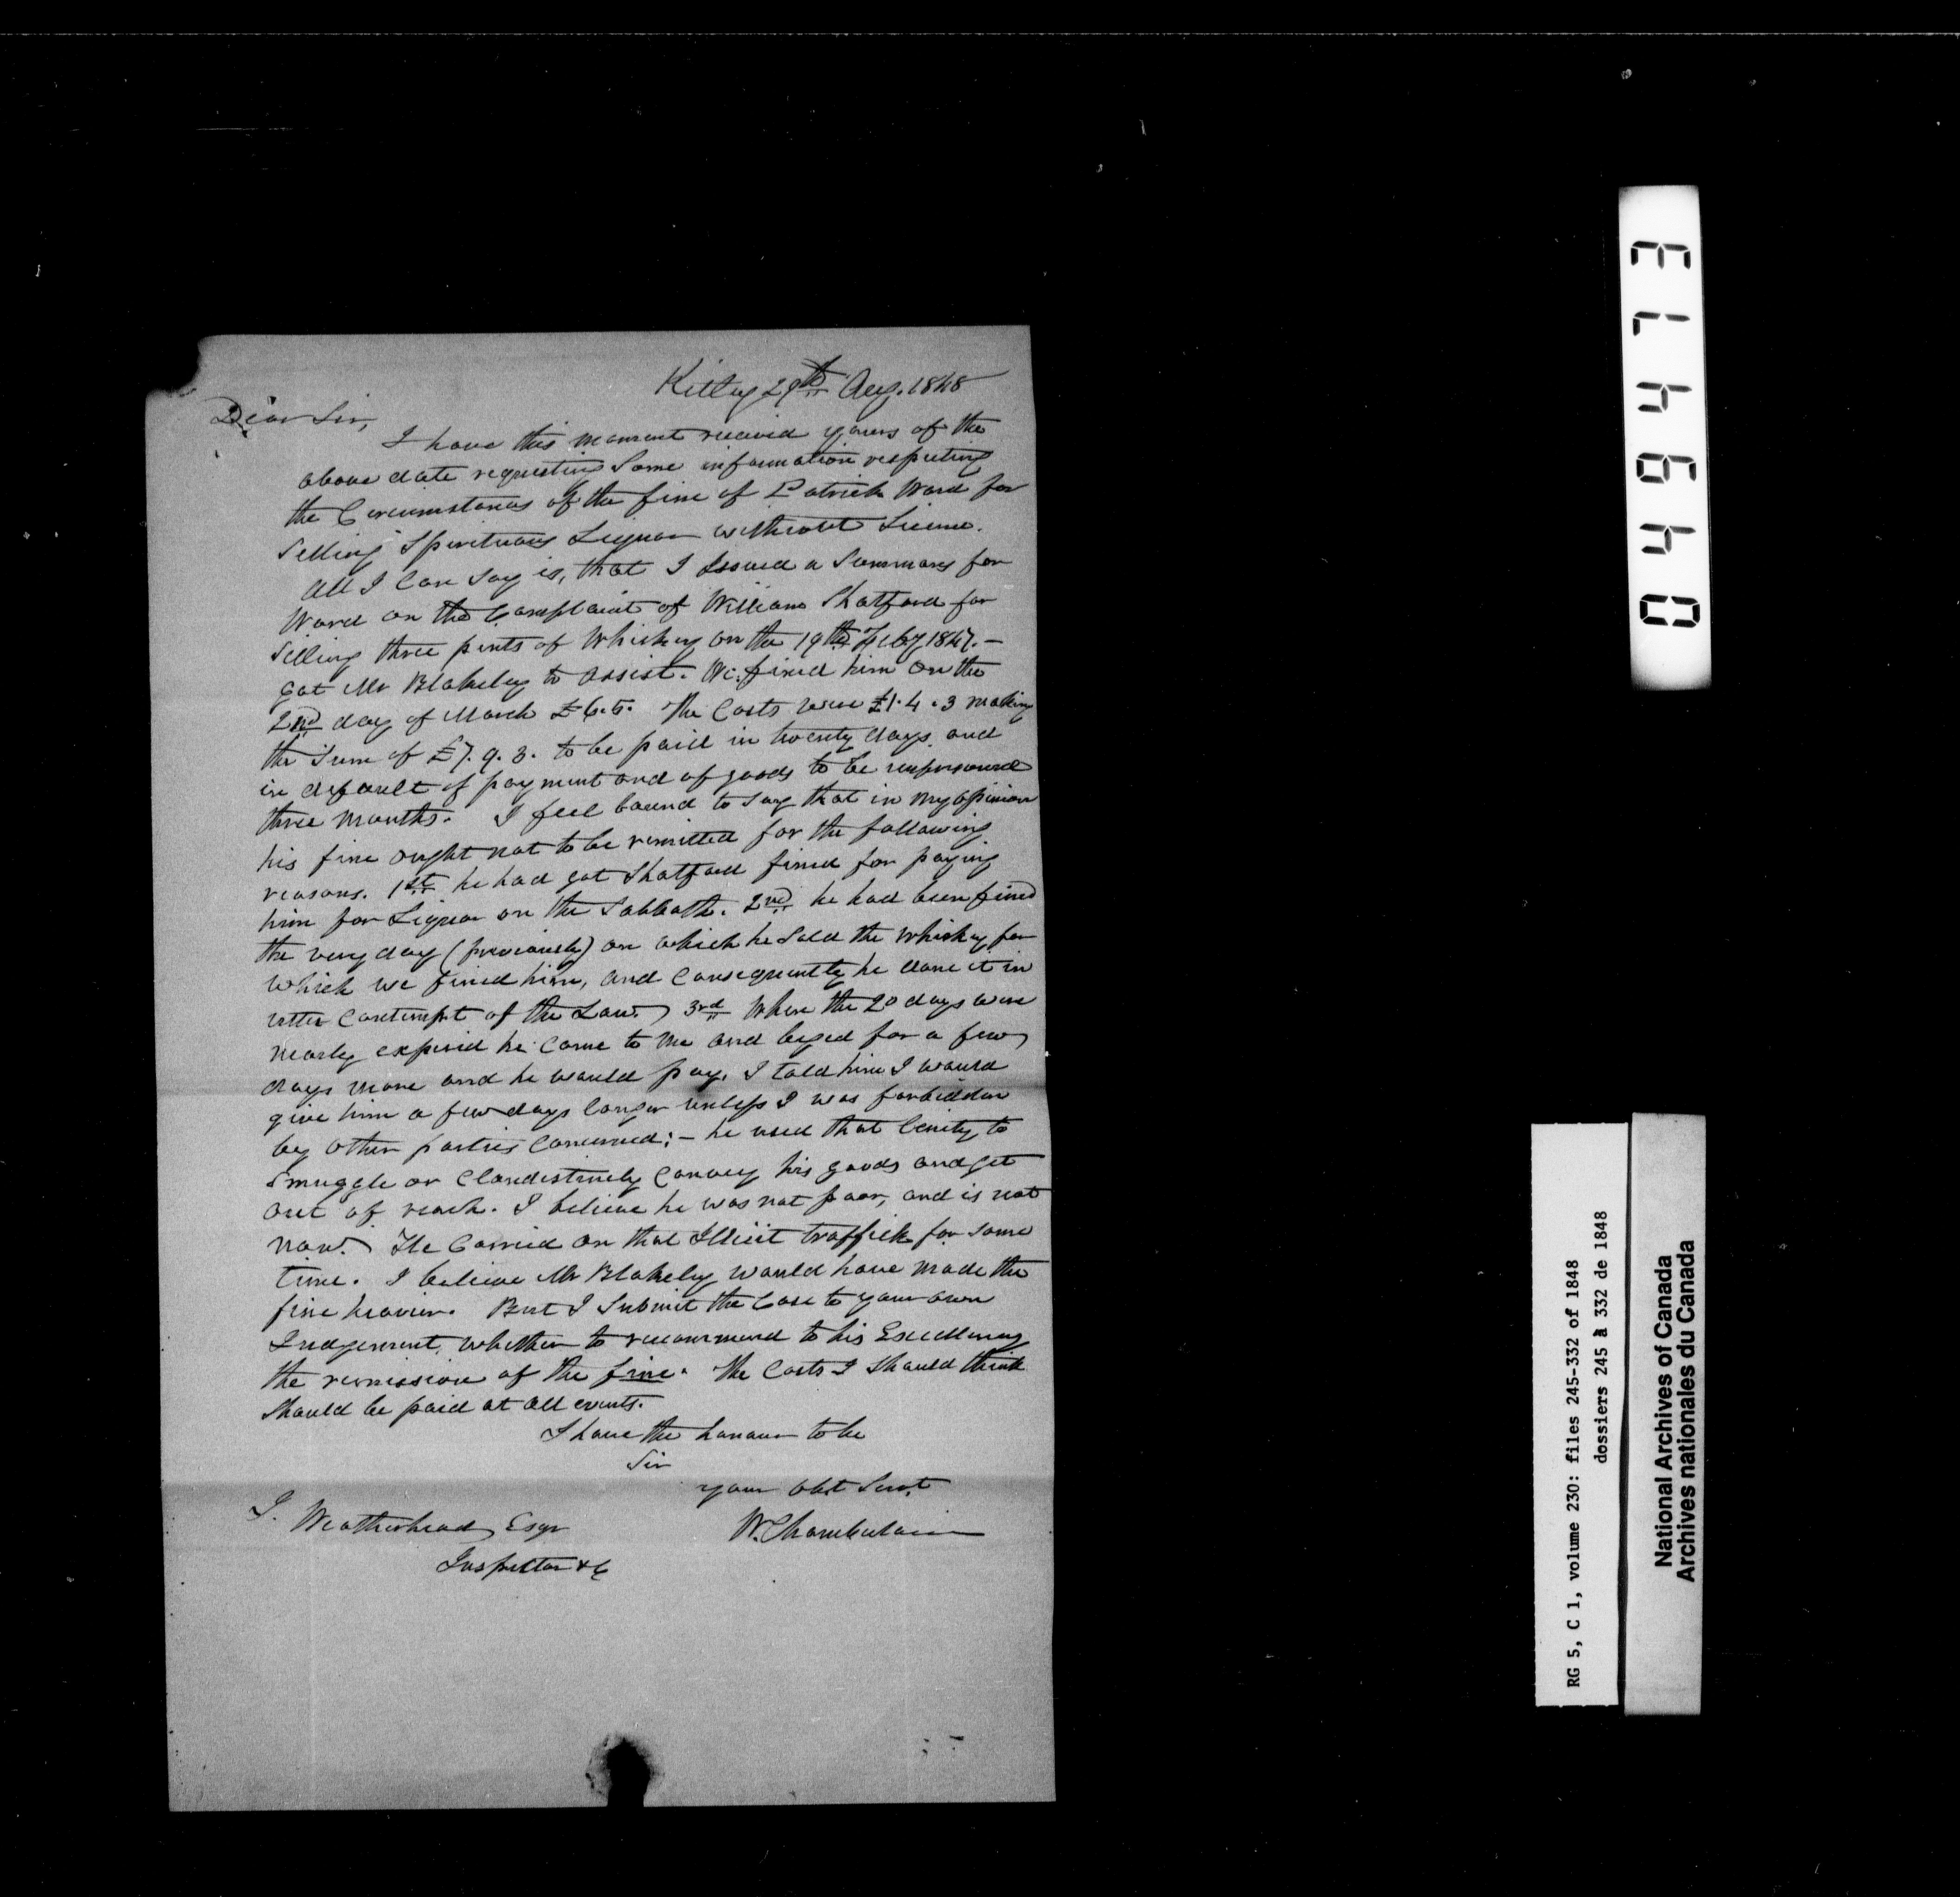 Kitley 29th Aug. 1848
Dear Sir,
I have this moment received yours of the
above date requesting Some information respecting
the Circumstances of the fine of Patrick Ward for
Selling Spirituous Liquor without License.
All I Can Say is, that I Issued a Summons for
Ward on the Complaint of William Shatford for
Selling three pints of Whiskey on the 19th Feby 1847. –
got Mr Blakeley to assist. We fined him on the
2nd day of March £6.5. The Costs were £1.4.3 making
the Sum of £7.9.3. to be paid in twenty days and
in default of payment and of goods to be imprisoned
three Months. I feel bound to say that in my opinion
his fine ought not to be remitted for the following
reasons. 1st he had got Shatford fined for paying
him for Liquor on the Sabbath. 2nd he had been fined
the very day (previously) on which he Sold the Whiskey for
which we fined him, and Consequently he done it in
utter Contempt of the Law. 3rd When the 20 days were
nearly expired he Came to me and beged for a few
days more and he would pay. I told him I would
give him a few days longer unless I was forbidden
by other parties Concerned; – he used that lenity to
Smuggle or Clandestinely Convey his goods and get
out of reach. I believe he was not poor, and is not
now. He Carried on that Illicit traffick for some
time. I believe Mr Blakeley would have made the
fine heavier. But I Submit the Case to your own
Judgement, whether to recommend to his Excellency
the remission of the fine. The Costs I should think
should be paid at all events.
I have the honour to be
Sir
your obt Servt
W. Chamberlain
J. Weatherhead Esqr
Inspector &c
0446413
RG 5, C 1, volume 230: files 245-332 of 1848
dossiers 245 à 332 de 1848
National Archives of Canada
Archives nationales du Canada